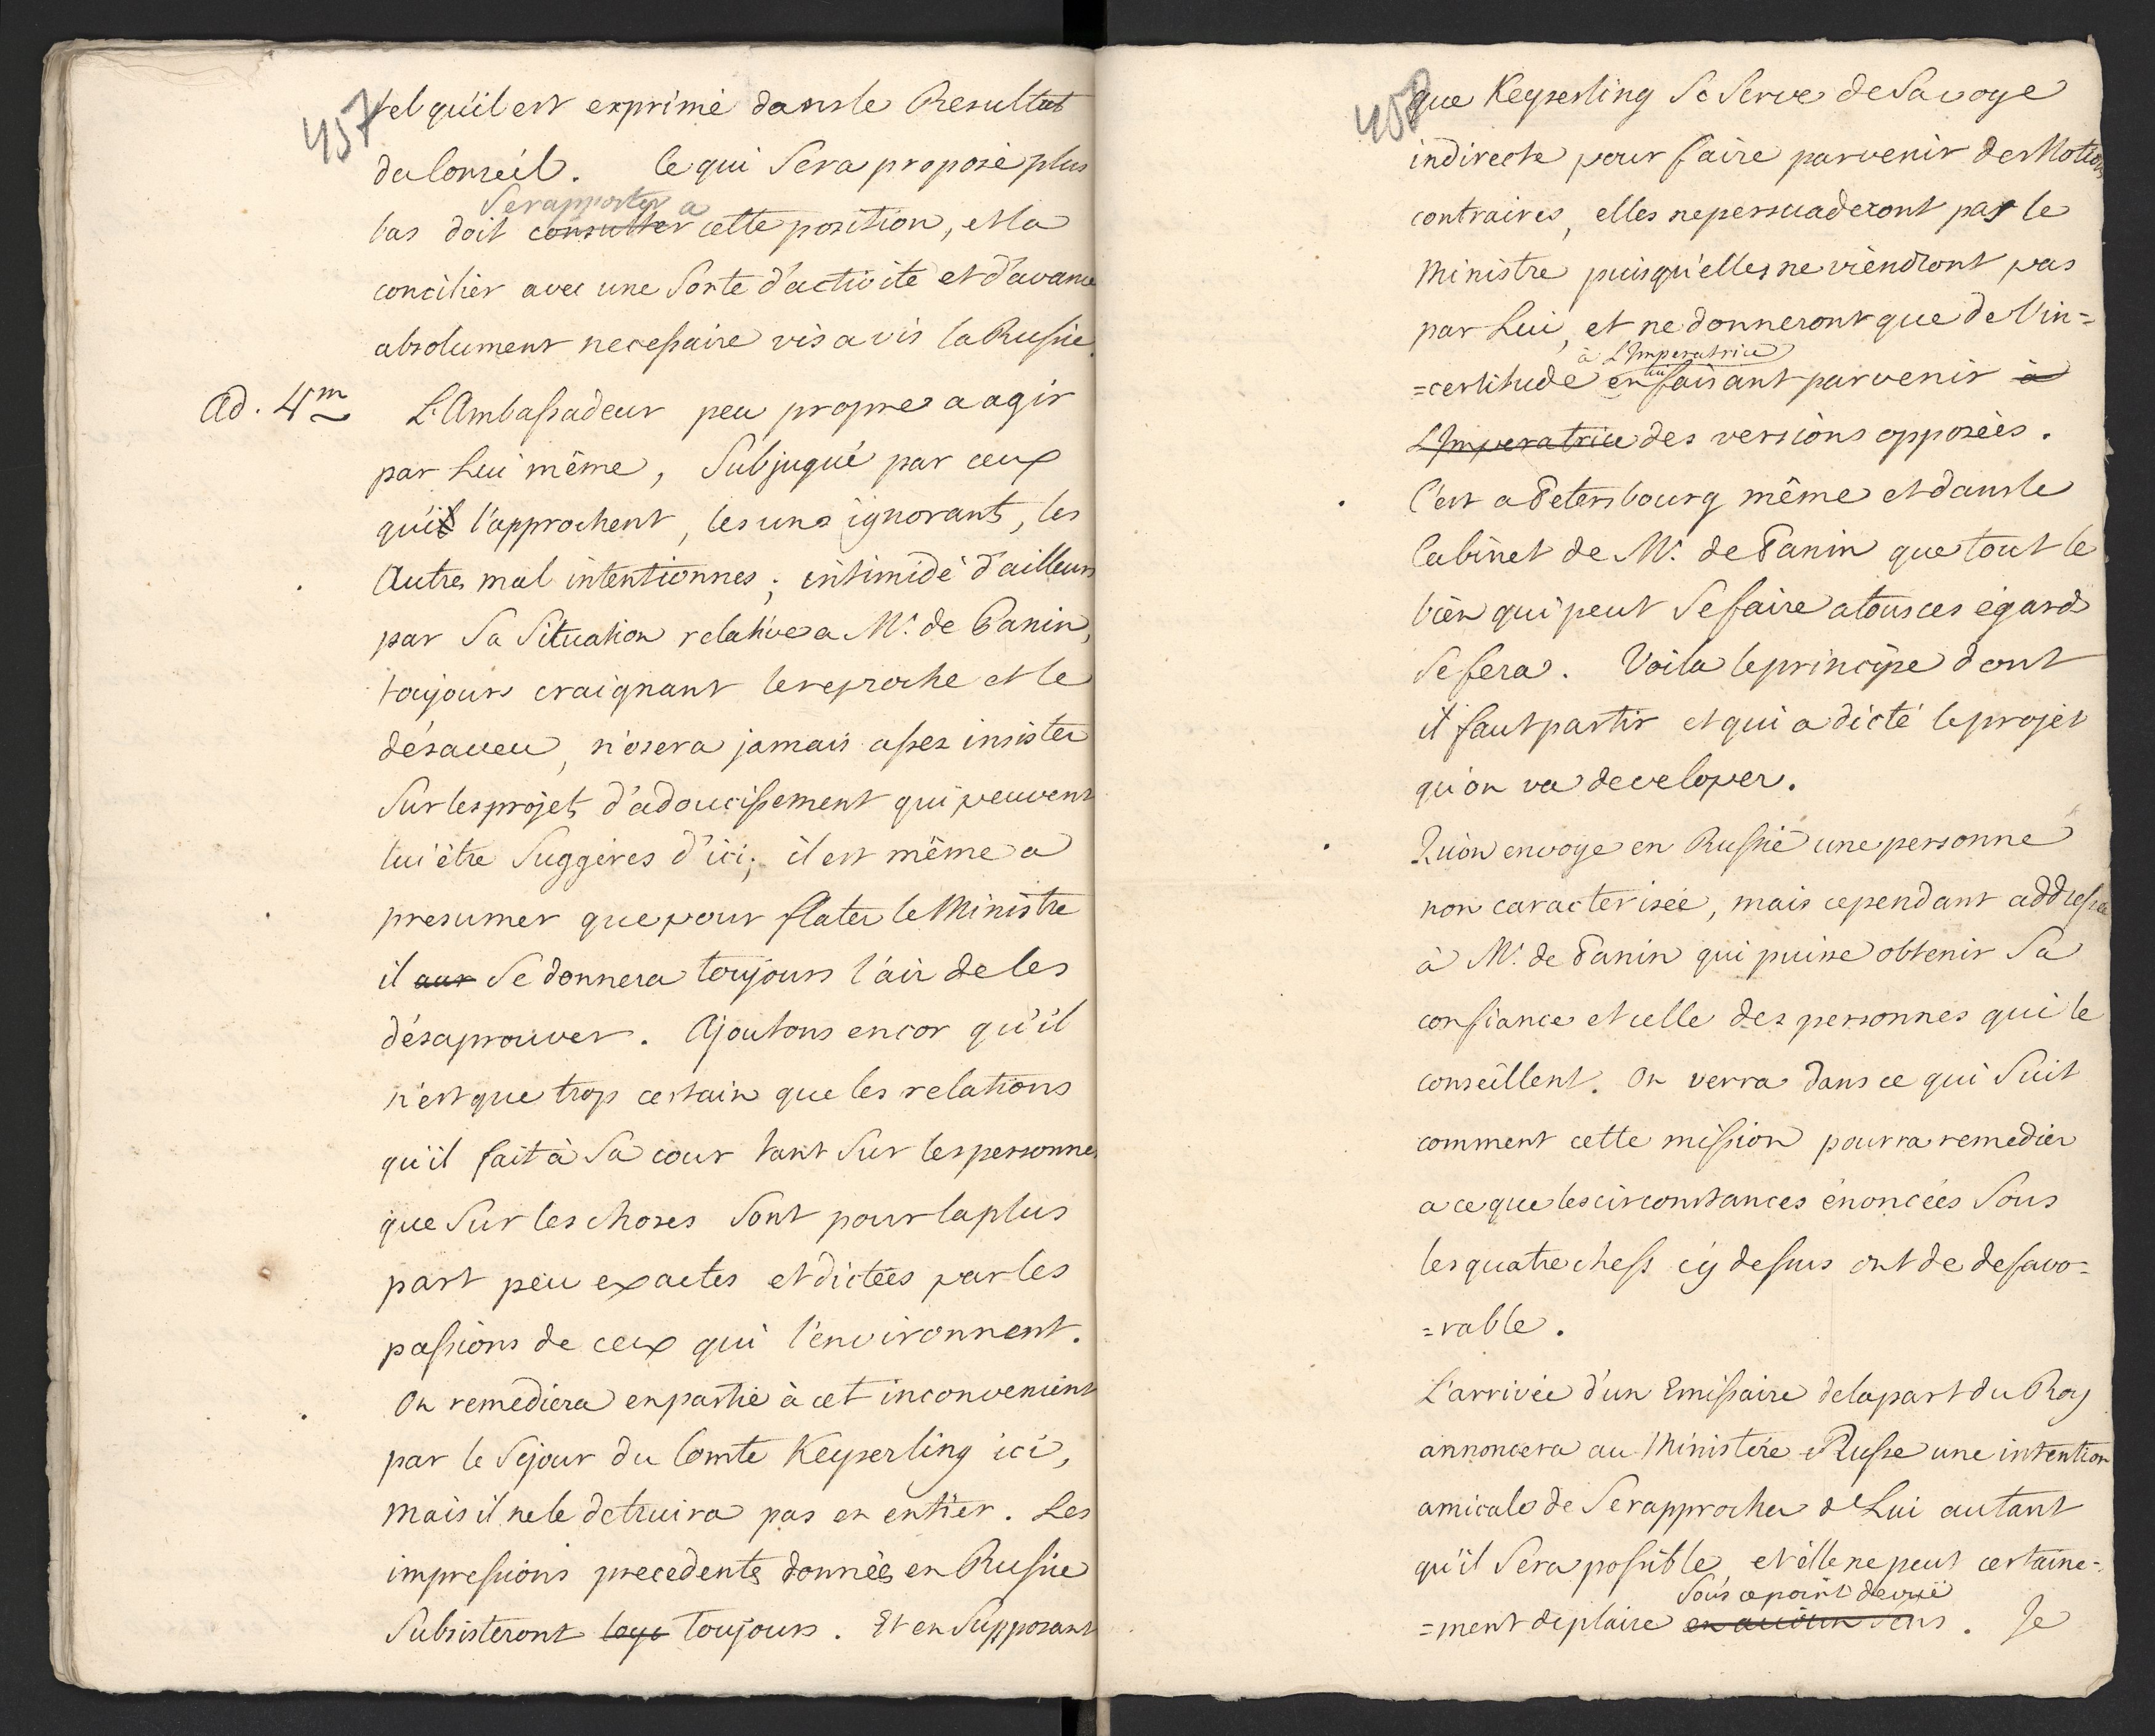 457
tel qu'il est exprimé dans le Resultat
du Conseil. Ce qui Sera proposé plus
Se rapporter a
bas doit consulter cette position, et la
concilier avec une Sorte d'activité et d'avance
absolument necessaire vis a vis la Russie.
Ad. 4m L'Ambassadeur peu propre a agir
par Lui même, Subjugué par ceux
qui l'approchent, les uns ignorants, les
Autres mal intentionnes; intimidé d'ailleurs
par Sa Situation relative a Mr. de Panin,
toujours craignant le reproche et le
désaveu, n'osera jamais assez insister
Sur les projets d'adoucissement qui peuvent
lui être Suggérés d'ici; il est même a
presumer que pour flater le Ministre
il aur Se donnera toujours l'air de les
désaprouver. Ajoutons encor qu'il
n'est que trop certain que les relations
qu'il fait à Sa cour tant Sur les personnes
que Sur les choses Sont pour la plus
part peu exactes et dictées par les
passions de ceux qui l'environnent.
On remediera en partie à cet inconvenient
par le Sejour du Comte Keyserling ici,
mais il ne le detruira pas en entier. Les
impressions precedents données en Russie
Subsisteront toujours. Et en Supposant
458
que Keyserling Se Serve de Sa voye
indirecte pour faire parvenir des Notions
contraires, elles ne persuaderont pas le
Ministre puisqu'elles ne viendront pas
par Lui, et ne donneront que de l'in=
à L'Imperatrice
=certitude en lui faisant parvenir à
L'Imperatrice des versions opposées.
C'est a Petersbourg même et dans le
Cabinet de Mr. de Panin que tout le
bien qui peut Se faire a tous ces égards
Se fera. Voila le principe dont
il faut partir et qui a dicté le projet
qu'on va developer.
Qu'on envoye en Russie une personne
non caracterisée, mais cependant addressée
à Mr. de Panin qui puisse obtenir Sa
confiance et celle des personnes qui le
conseillent. On verra dans ce qui Suit
comment cette mission pourra remedier
a ce que les circonstances énoncées Sous
les quatre chefs cy dessus ont de defavo=
=rable.
L'arrivée d'un Emissaire de la part du Roy
annoncera au Ministère Russe une intention
amicale de Se rapprocher de Lui autant
qu'il Sera possible, et elle ne peut certaine=
Sous ce point de vuë
=ment deplaire en aucun sens. Je